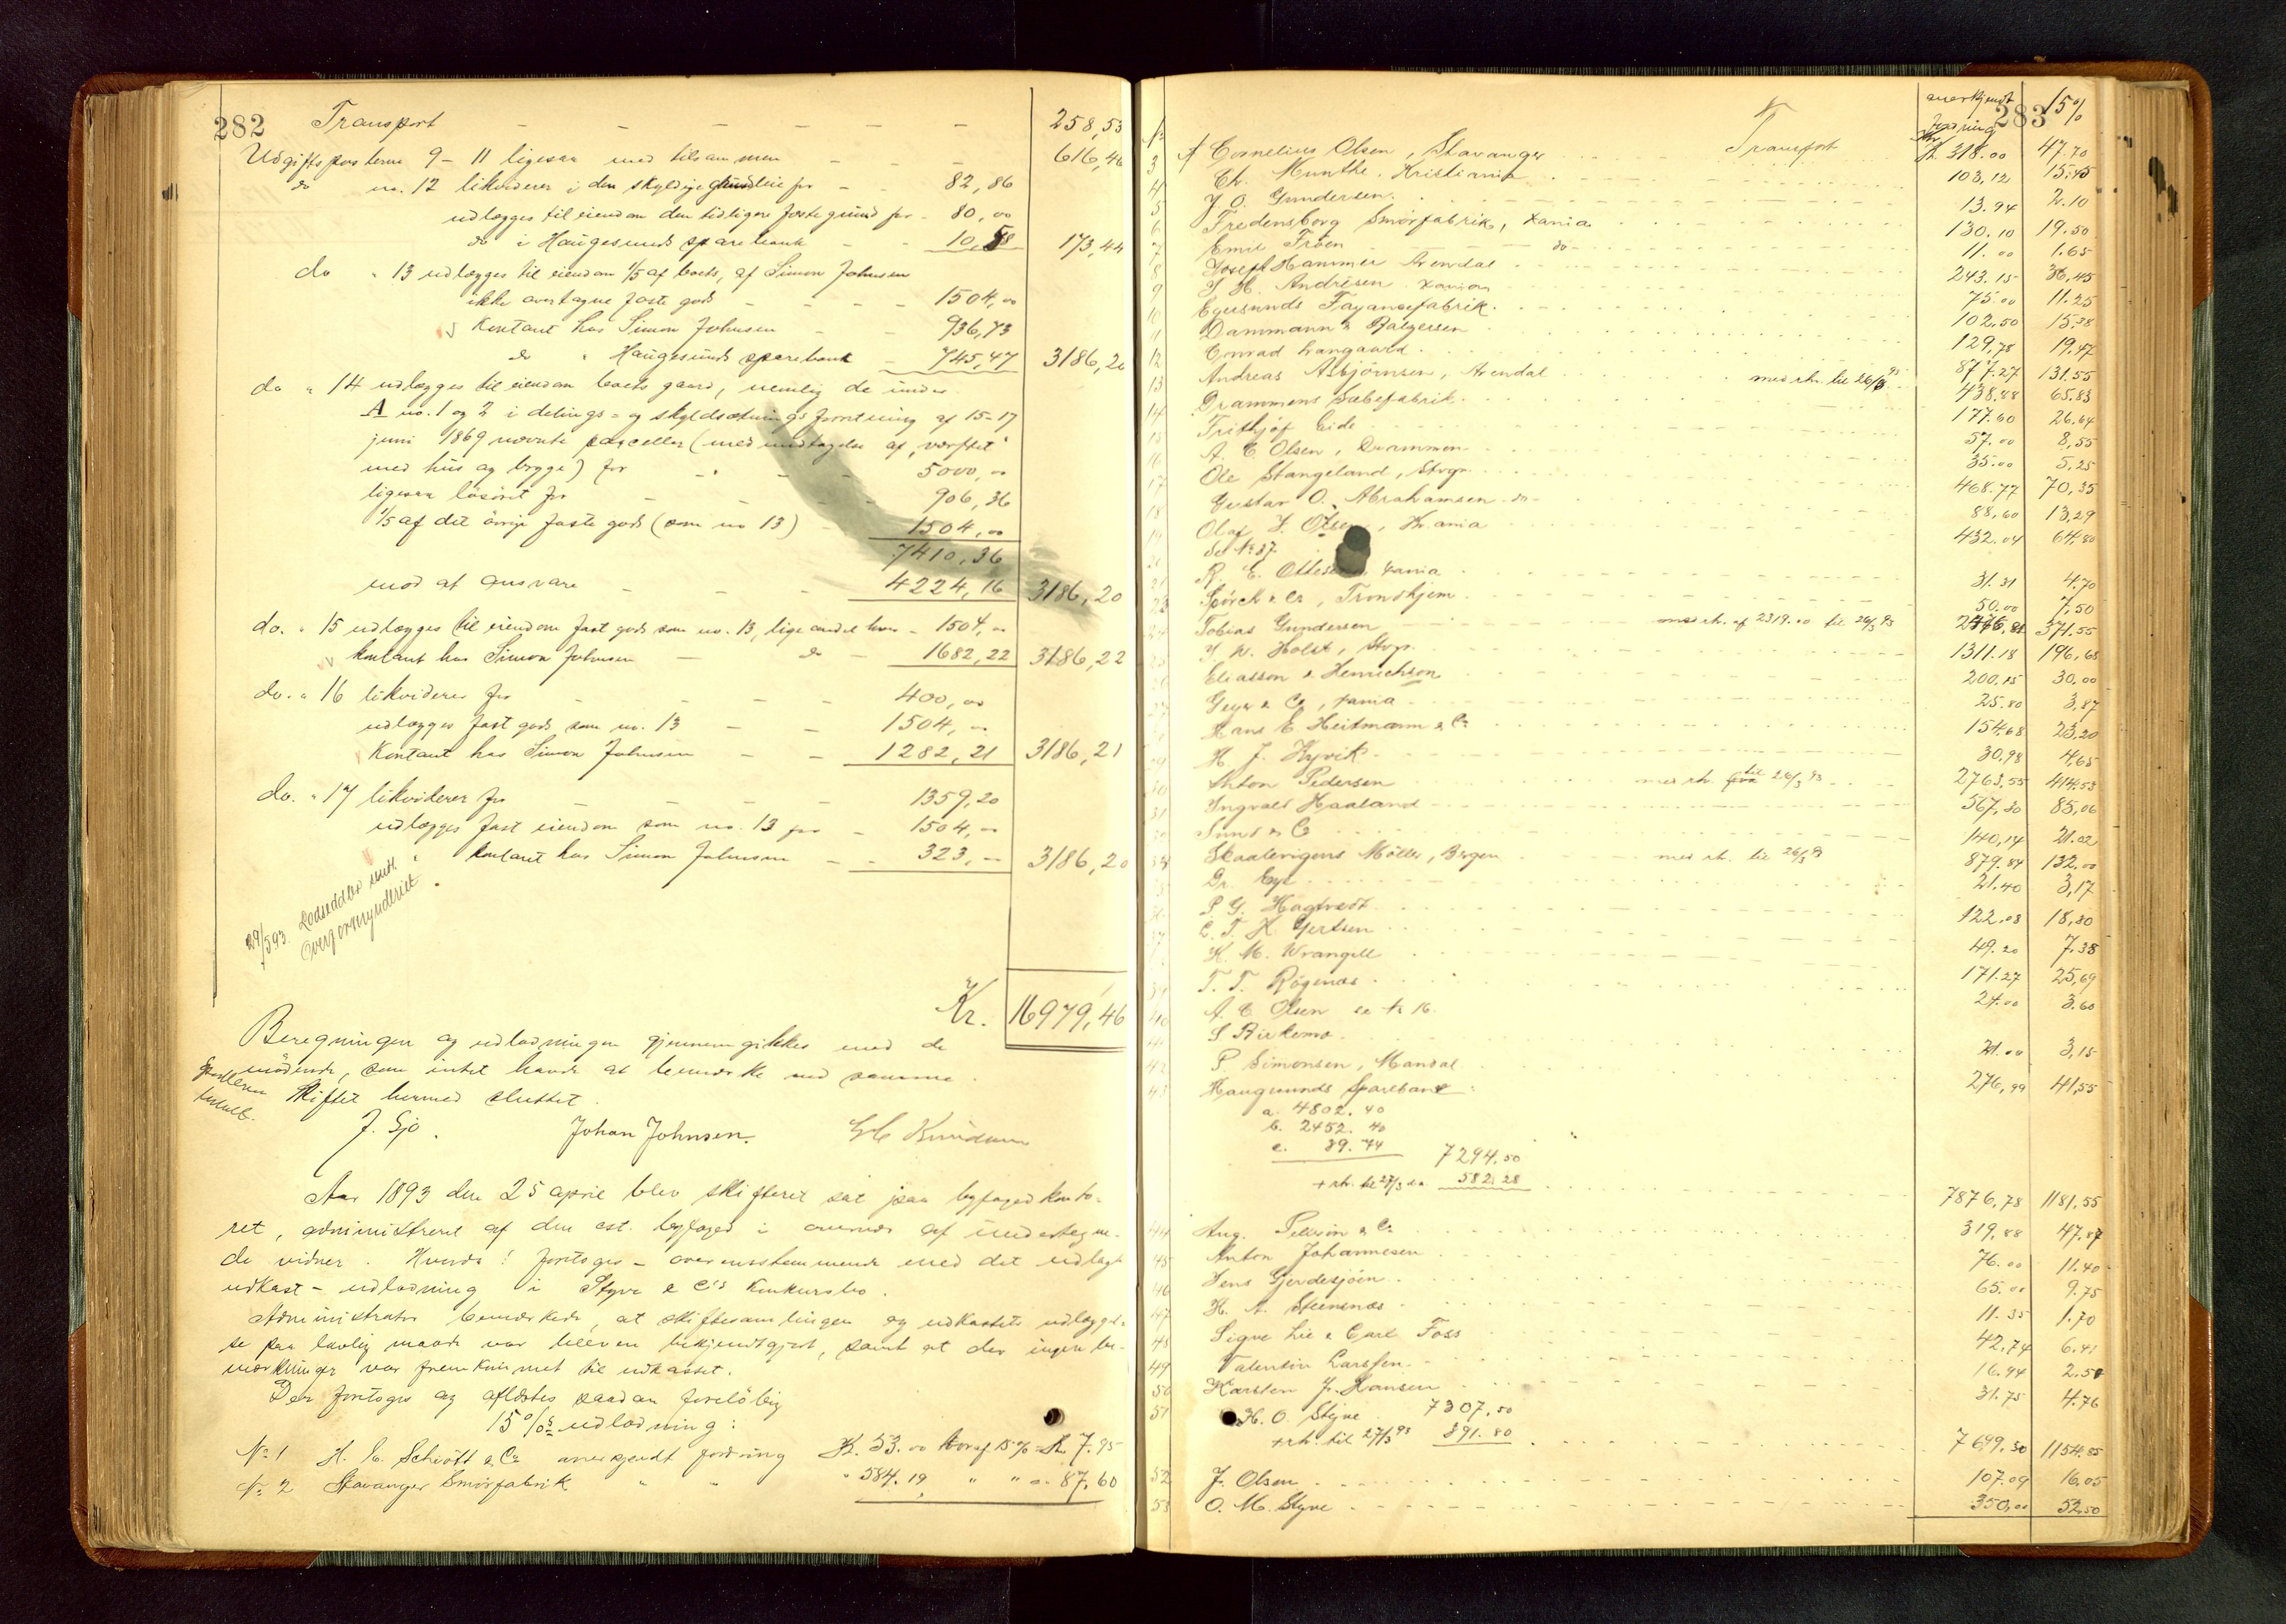 282 Transport - - - - - - 258,53
Udgiftsposterne 9-11 ligesaa med tilsammen - - - 616,46
do no. 12 likviderer i den skyldige grundleie for - - 82,86
udlægges til eiendom den tidligere faste grund for - 80,00
do i Haugesunds sparebank - - 10,58 173,44
do " 13 udlægges til eiendom 1/5 af boets, af Simon Johnsen
ikke overtagne faste gods - - - - 1504,00
Kontant hos Simon Johnsen - - 936,73
do " Haugesunds sparebank - 745,47 3186,20
do " 14 udlægges til eiendom boets gaard, nemlig de under
A no. 1 og 2 i delings- og skyldsætningsforretning af 15-17
juni 1869 nævnte parceller (med undtagelse af "værftet"
med hus og brygge) for - - - 5000,00
ligesaa løsøret for - - - - 906,36
1/5 af det øvrige faste gods (som no 13) - 1504,00
7410,36
mod at ansvare - - - 4224,16 3186,20
do. " 15 udlægges til eiendom fast gods som no. 13, - 1504,00
kontant hos Simon Johnsen - do - 1682,22 3186,22
do. " 16 likviderer for - - - - 400,00
udlægges fast gods som no. 13 - - 1504,00
Kontant hos Simon Johnsen - - 1282,21 3186,21
do. " 17 likviderer for - - - - 1359,20
udlægges fast eiendom som no. 13 for - 1504,00
kontant hos Simon Johnsen - - 323,00 3186,20
29/5 93. Lodseddler
Overformynderiet.
Kr. 16979,46
Beregningen og udlodningen gjennemgikkes med de
mødende, som intet havde at bemærke ved samme.
Skiftet hermed sluttet.
J. Sjo. Johan Johnsen. Knudsen
Aar 1893 den 25 april blev skifteret sat paa byfogedkonto-
ret, administreret af den cst. byfoged i overvær af undertegne-
de vidner. Hvorda: foretoges - overensstemmende med det udlagte
udkast - udlodning i Styve & Co's konkursbo.
Administrator bemærkede, at skiftesamlingen og udkastets udlæggel-
se paa lovlig maade var bleven bekjendtgjort, samt at der ingen be-
mærkninger var fremkommet til udkastet.
Der foretoges og aflæstes saadan foreløbig
15 %s udlodning:
No 1 H. C. Schiøtt & Co anerkjendt fordring K. 53.00 hvoraf 15 % K. 7.95
No 2 Stavanger Smørfabrik " " " 584.19 " " " 87.60
283
Transport anerkjendt fordring 15%
3 Cornelius Olsen, Stavanger K. 318.00 47.70
4 Chr. Munthe. Kristiania 103,12 15.45
5 J. O. Gundersen. 13.94 2.10
6 Fredensborg Smørfabrik, Xania 130.10 19.50
7 Emil Frøen - do - 11.00 1.65
8 Joseph Hammer Arendal 243.15 36,45
9 J. H. Andresen. Xania 75.00 11.25
10 Egersunds Fayancefabrik. 102.50 15,38
11 Dammann & 129,78 19.47
12 Conrad Langaard. 877.27 131.55
13 Andreas Asbjørnsen, Arendal med rh. til 26/3 93 438.88 65.83
14 Drammens Sæbefabrik. 177.60 26.64
15 Frithjof Eide 57.00 8,55
16 A. C. Olsen, Drammen 35.00 5.25
17 Ole Stangeland, Stvgr. 468.77 70,35
18 Gustav O. Abrahamsen - do - 88,60 13,29
19 Olaf J. Olsen, Kr.ania 432.04 64,80
20 Se No 37
21 R. E. Xania 31.31 4.70
Spørck & Co, Trondhjem 50.00 7.50
24 Tobias Gundersen med rh. af 2319.00 til 26/3 93 371.55
25 J. W. Holst, Stvgr. 1311.18 196,68
Eliasson & Henrichson 200.15 30.00
Geyer & Co, Xania 25.80 3,87
Hans E Heitmann & Co 154.68 23,20
29 H. J. Kyvik 30,98 4,65
30 Anton Pedersen med rh. til 26/3 93 2763,55 414.53
31 Ingvald Haaland 567,30 85,06
Sund & Co 140,14 21.02
Skaalevigens Mølle, Bergen med rh. til 26/3 93 879.84 132.00
Dr. 21.40 3,17
P. G. Hagtvedt 122.08 18,30
C. T. H. Gjertsen 49.20 7.38
H. M. Wrangell 171.27 25,69
39 T. T. Røgenæs. 24.00 3.60
40 A. C. Olsen se No 16.
41 S Birkemo 21.00 3,15
42 P. Simonsen, Mandal 276,99 41,55
43 Haugesunds Sparebank:
a. 4802.40
b. 2452.40
c. 39.74 7294.50
+ rh. til 27/3 582.28 7876,78 1181,55
44 Aug. & Co 319,88 47.87
45 Anton Johannesen 76.00 11.40
46 Jens Gjerdesjøen 65.00 9.75
47 H. A. Steensnæs 11.35 1.70
48 Signe Lie & Carl Foss 42.74 6.41
49 Valentin Larssen 16.94 2.51
50 Karsten J. Hansen 31.75 4.76
51 H. O. Styve 7307.50
+ rh. til 27/3 93 391.80 7699.30 1154.85
52 J. Olsen 107.09 16.05
53 O. M. Styve 350,00 52.50